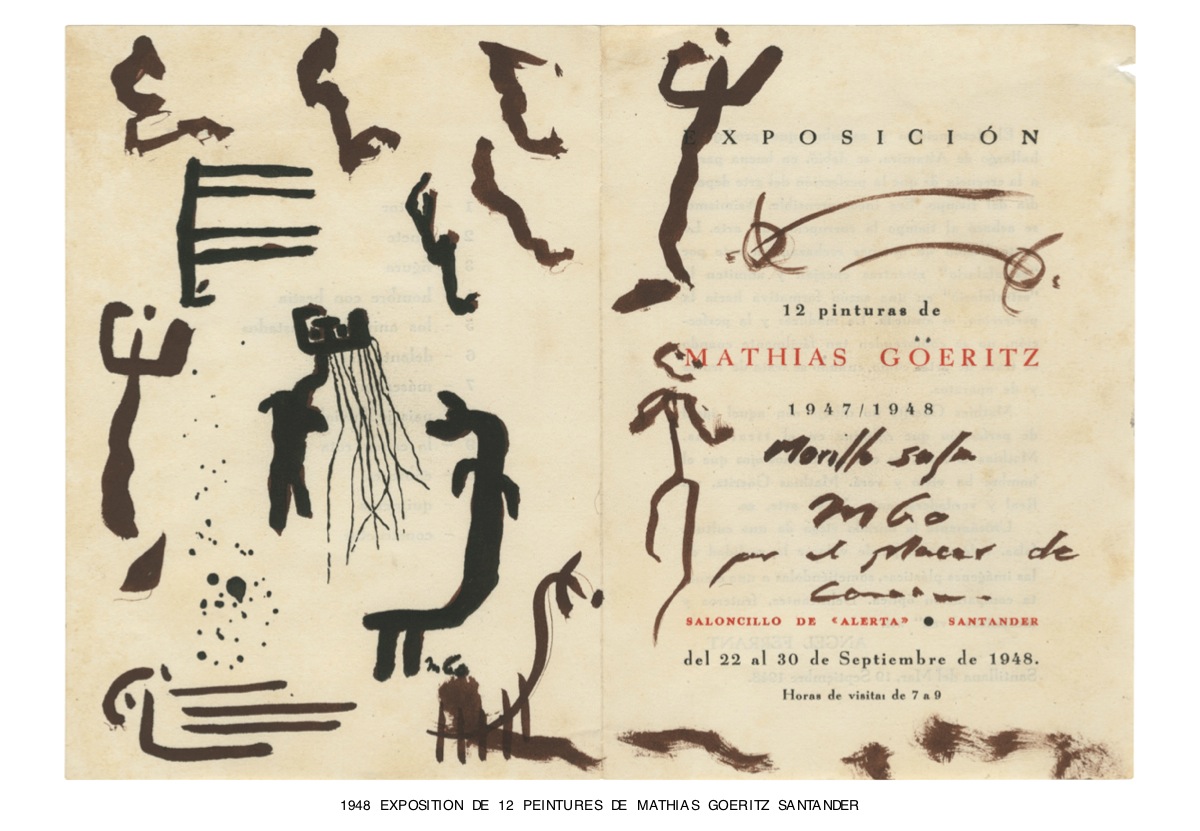 EXPOSICIÓN
12 pinturas de
MATHIAS GÖERITZ
1947/1948
Morillo
MGo
por el placer de
SALONCILLO DE «ALERTA» ● SANTANDER
del 22 al 30 de Septiembre de 1948.
Horas de visita: de 7 a 9
MGo
1948 EXPOSITION DE 12 PEINTURES DE MATHIAS GOERITZ SANTANDER